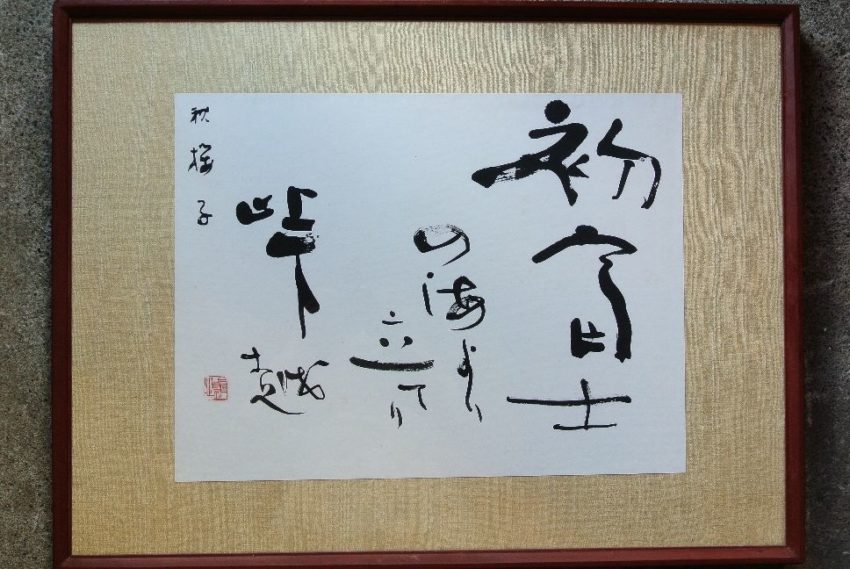 初富士
の海より
立てり
峠越
秋櫻子